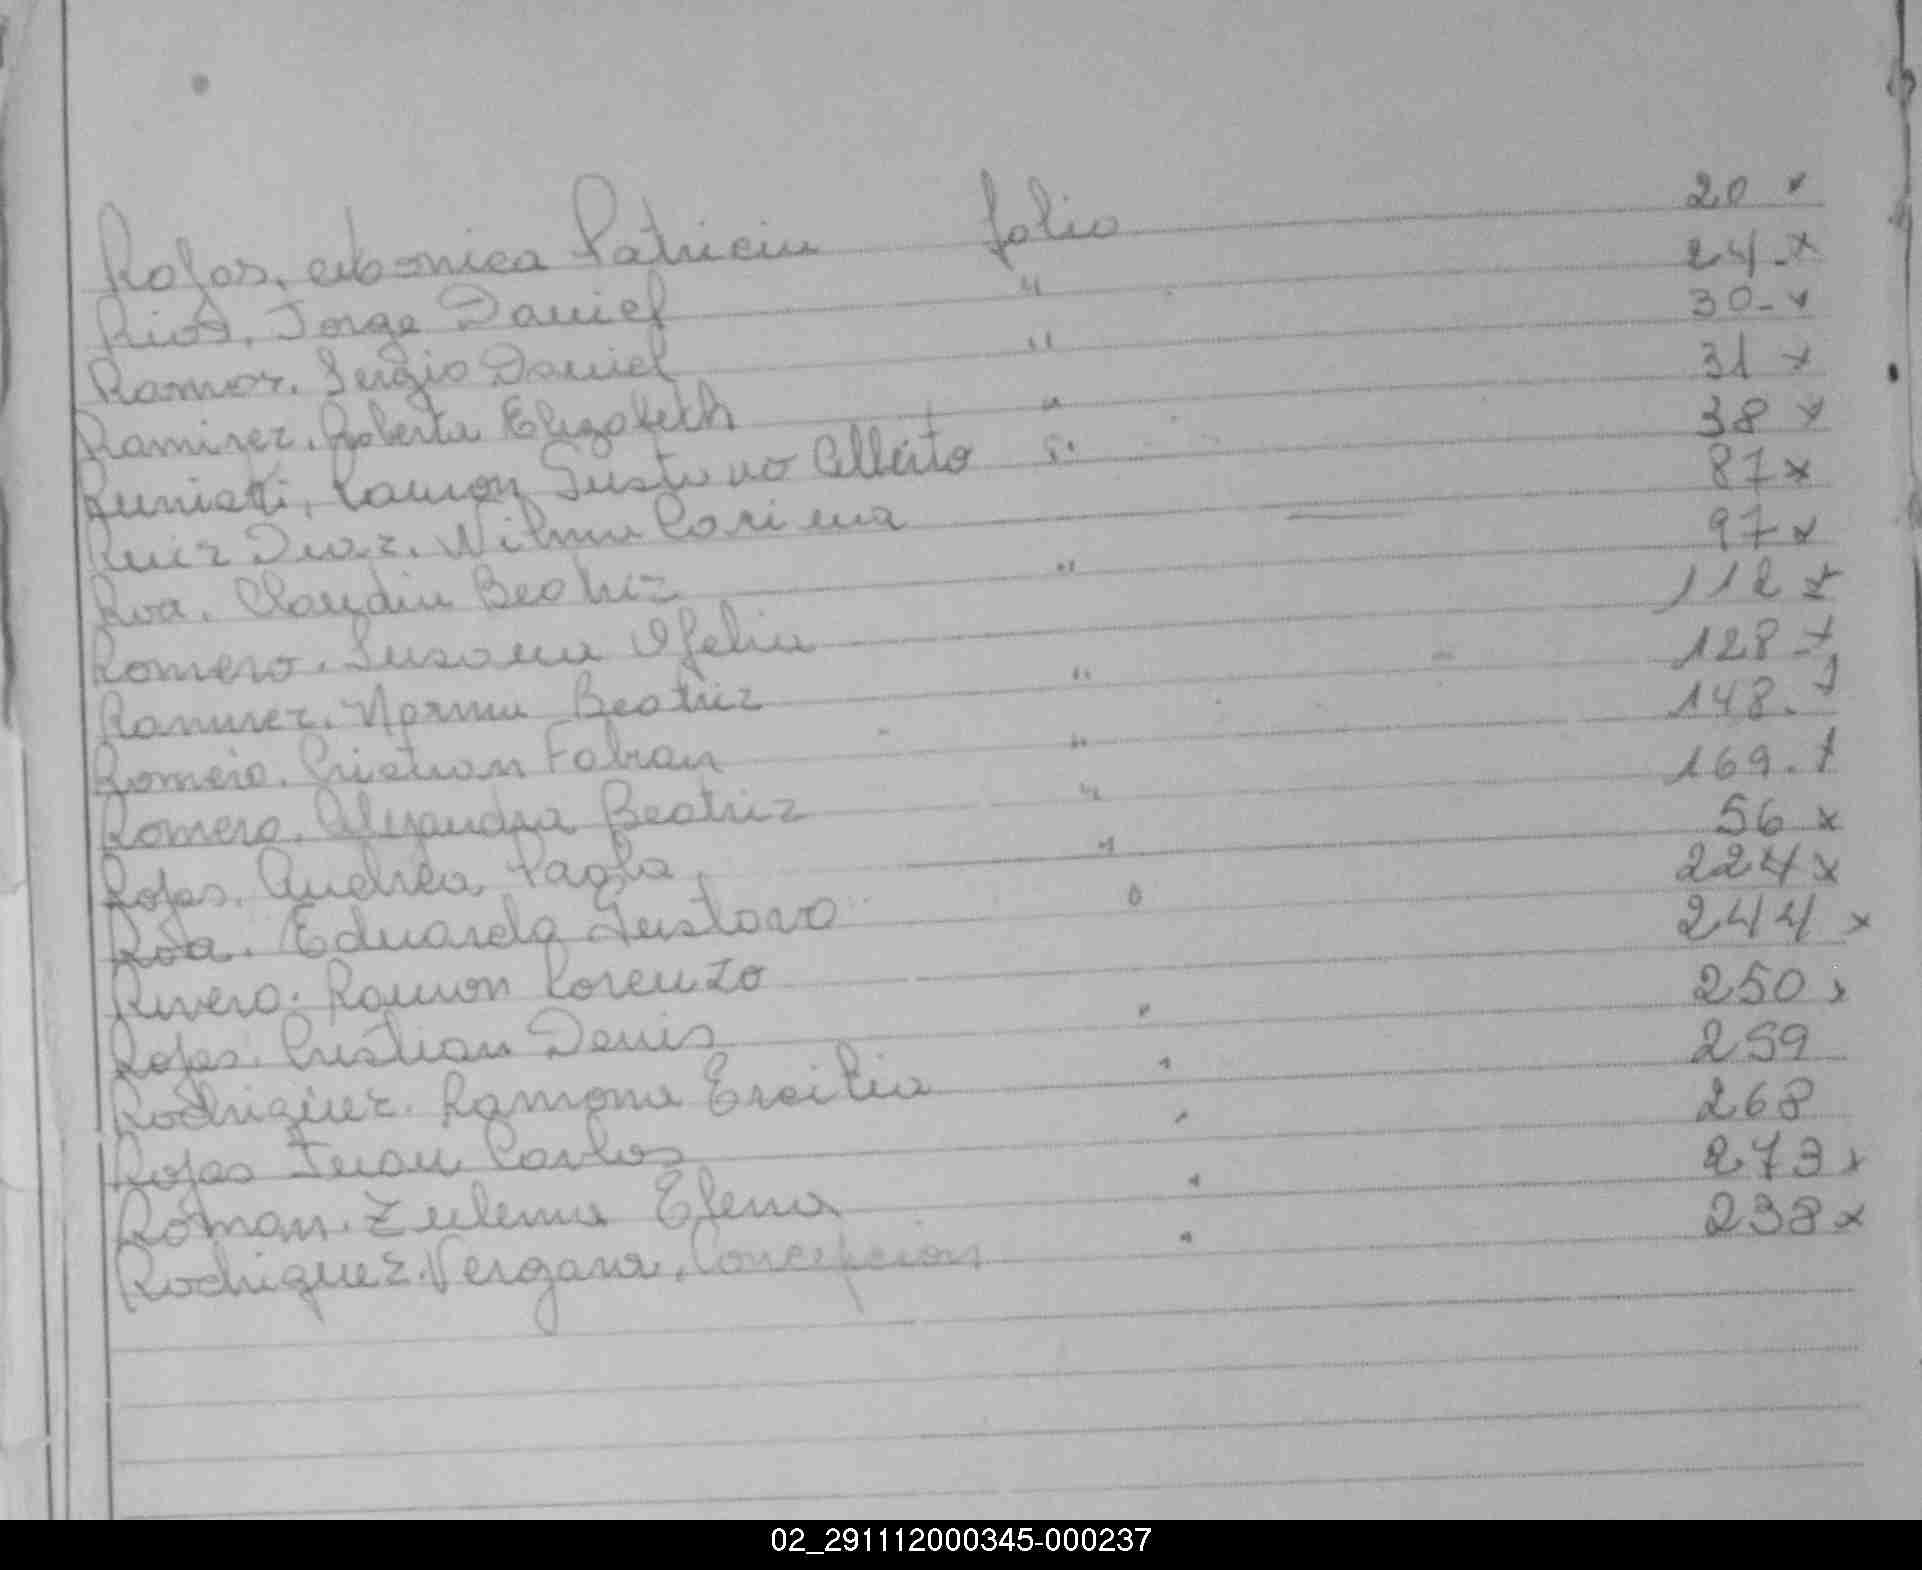 Rojas, Monica Patricia folio 20 x
Rios, Jorge Daniel " 24 - x
Ramos, Sergio Daniel " 30 - x
Ramirez, Roberta Elizabeth " 31 x
Ramon Gustavo Alberto " 38 x
Ruiz Diaz, Wilma Carina — 87 x
Roa, Claudia Beatriz " 97 x
Romero, Susana Ofelia 112 x
Ramirez, Norma Beatriz " 128 x
Romero, Cristian Fabian " 148. x
Romero, Alejandra Beatriz " 169. x
Rojas, Andrea Paola " 56 x
Roa, Eduardo Gustavo " 224 x
Rivero, Ramon Lorenzo 244 x
Rojas, Cristian Denis " 250 x
Rodriguez, Ramona Ercilia " 259
Rojas Juan Carlos " 268
Roman, Zulema Elena " 273 x
Rodriguez Vergara, Concepcion " 238 x
02_291112000345-000237